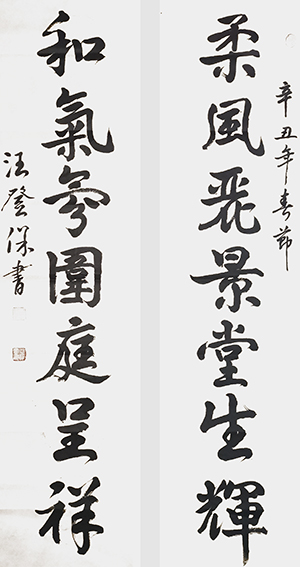 辛丑年春節
柔風麗景堂生輝
和氣氛圍庭呈祥
汪登保書